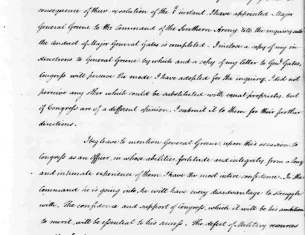 consequence of their resolution of the 5th instant. I have appointed Major
General Greene to the command of the Southern Army till the inquiry into
the conduct of Major General Gates is completed. I inclose a copy of my in-
structions to General Greene by which and a copy of my letter to Genl Gates,
Congress will perceive the mode I have adopted for the inquiry. I did not
perceive any other which could be substituted with equal propriety, but
if Congress are of a different opinion I submit it to them for their further
directions.
I beg leave to mention General Greene upon this occasion to
Congress as an Officer, in whose abilities fortitude and integrity from a long
and intimate experience of them I have the most intire confidence. In the
command he is going into, he will have every disadvantage to struggle
with. The confidence and support of Congress, which it will be his ambition
to merit, will be essential to his success. The defect of Military resources